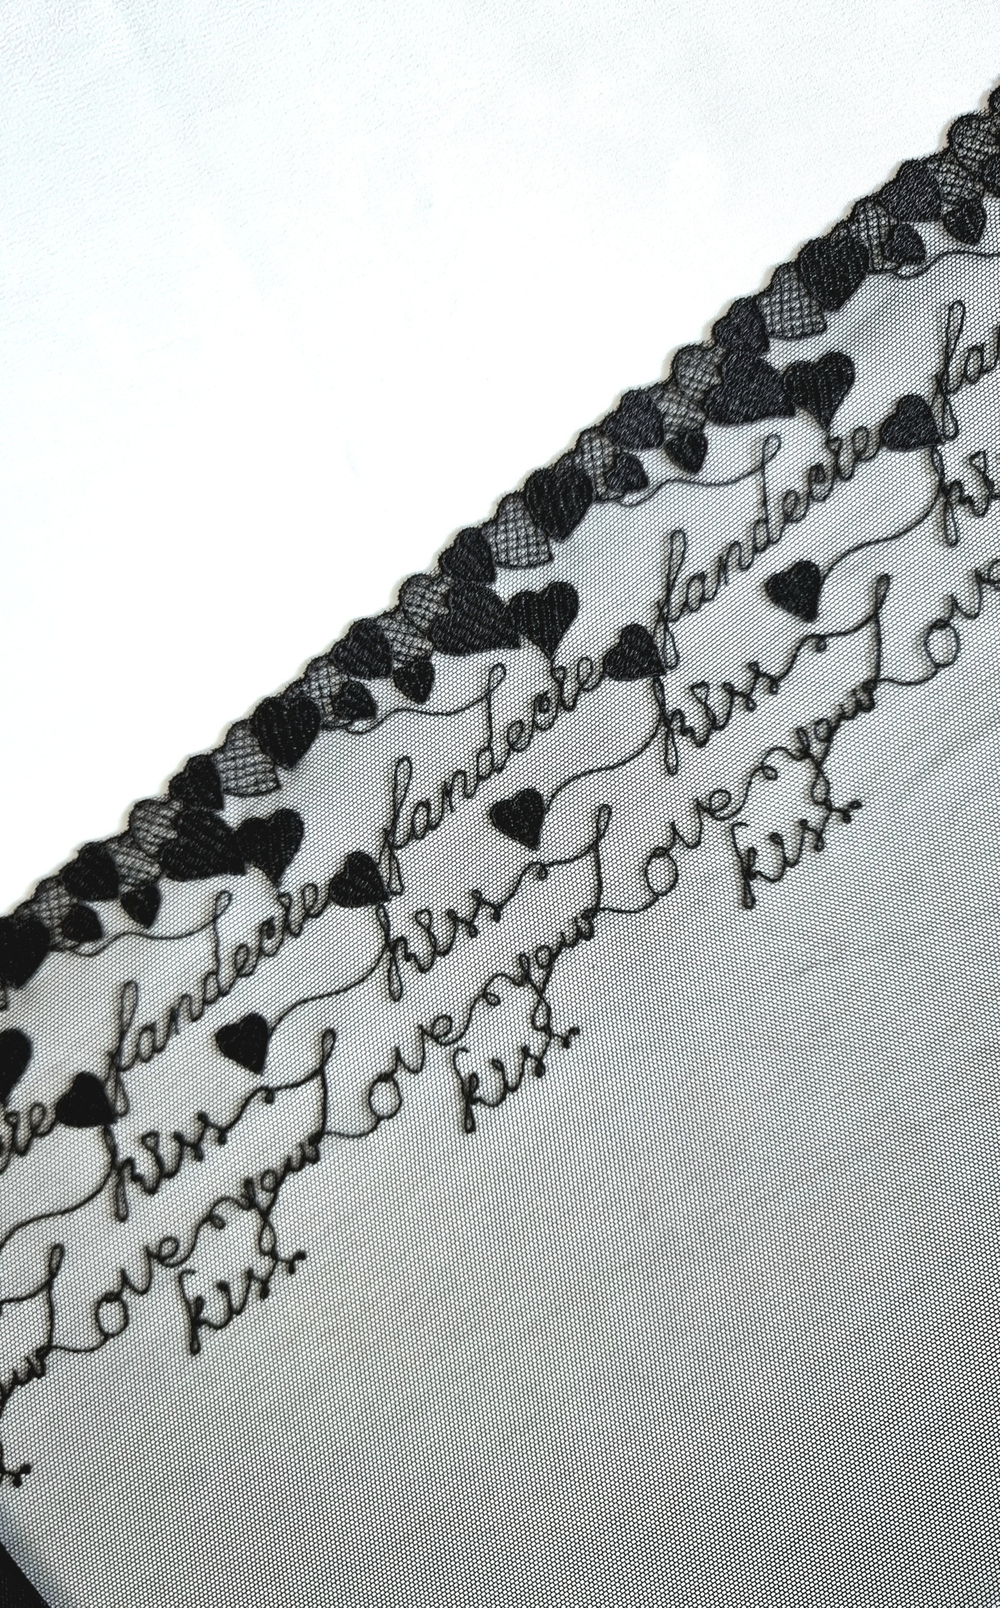 fandecre fandecre fandecre fandecre
kiss kiss kiss
Love your Love your Love your
kiss kiss kiss